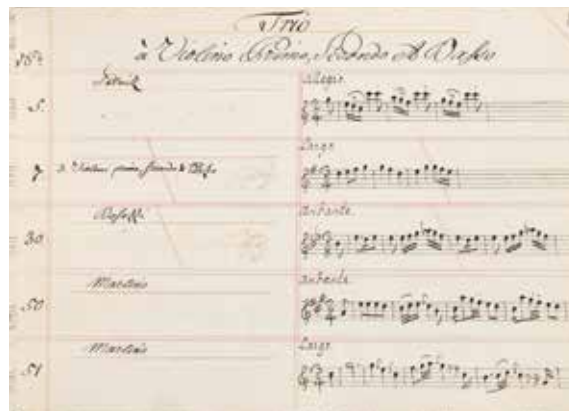 Trio
à Violino Primo, Secondo et Basso
5. Allegro
7 à Violino primo, Secondo & Basso Largo
30 Andante
50 Martino Andante
51 Martino Largo